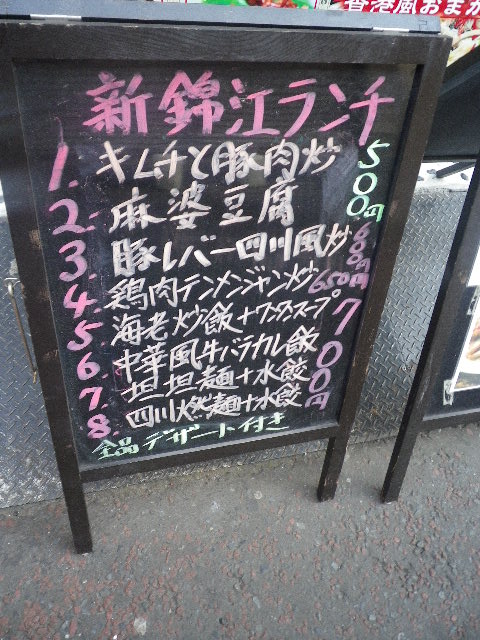 香港風おまか
新錦江ランチ
1. キムチと豚肉炒
2. 麻婆豆腐 500円
3. 豚レバー四川風炒 600円
4. 鶏肉テンメンジャン炒 650円
5. 海老炒飯+ワンタンスープ
6. 中華風牛バラカレー飯
7. 坦坦麺+水餃
8. 四川燃麺+水餃 700円
全品デザート付き